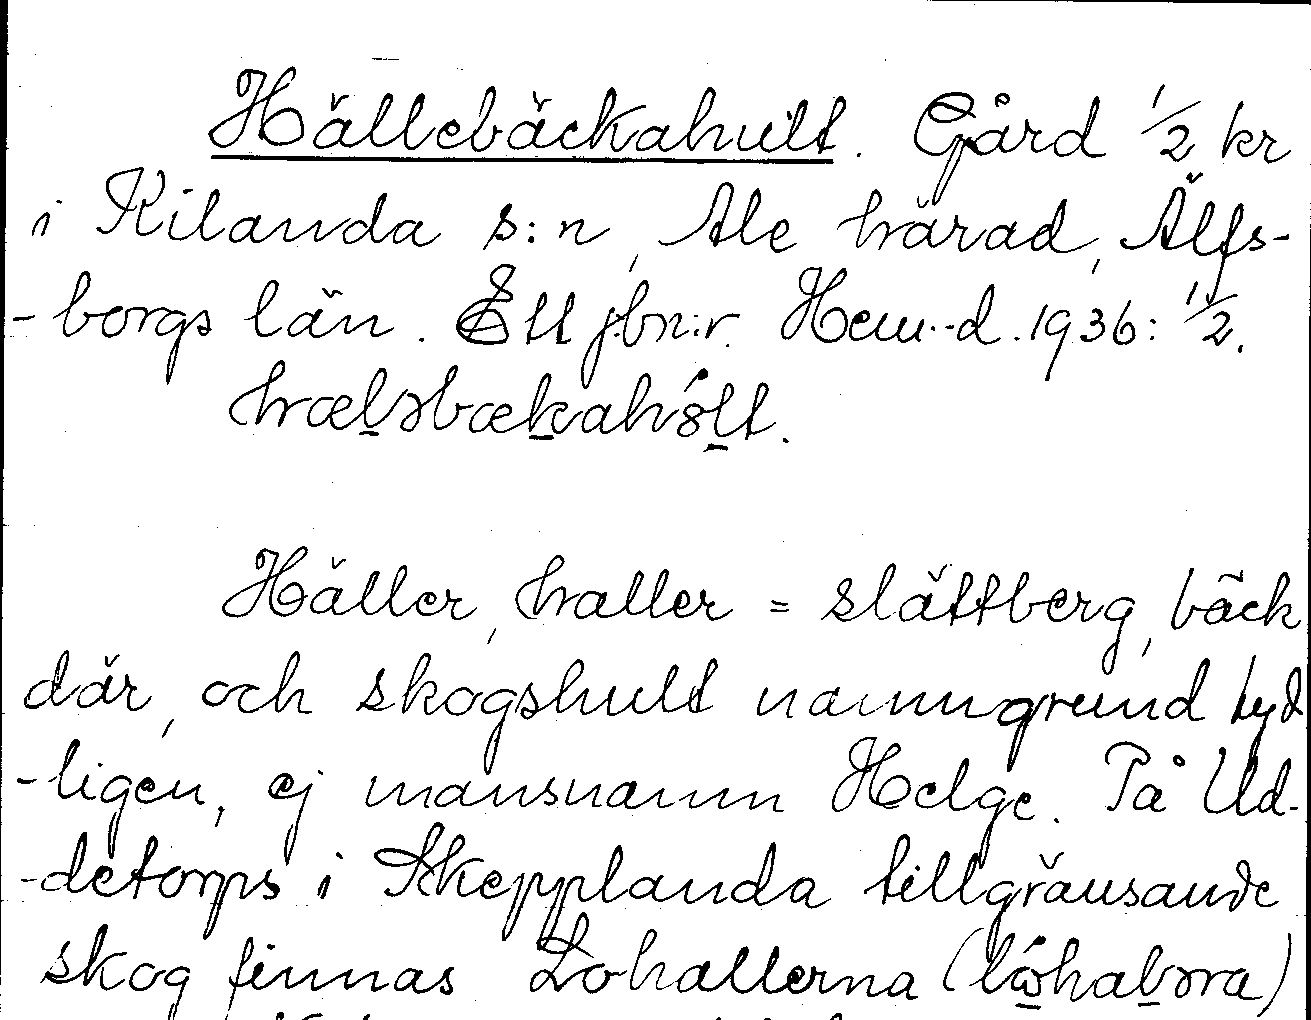 Hällebäckahult. Gård 1/2 kr
i Kilanda s:n, Ale härad, Älfs-
-borgs län. Ett jbn:r. Hem.-d. 1936: 1/2.
hælsbækahólt.
Häller, haller = slättberg, bäck
där, och skogshult namngrund tyd
-ligen, ej mansnamn Helge. På Ud-
-detorps i Skepplanda tillgränsande
skog finnas Lohallerna (lóhaləra)